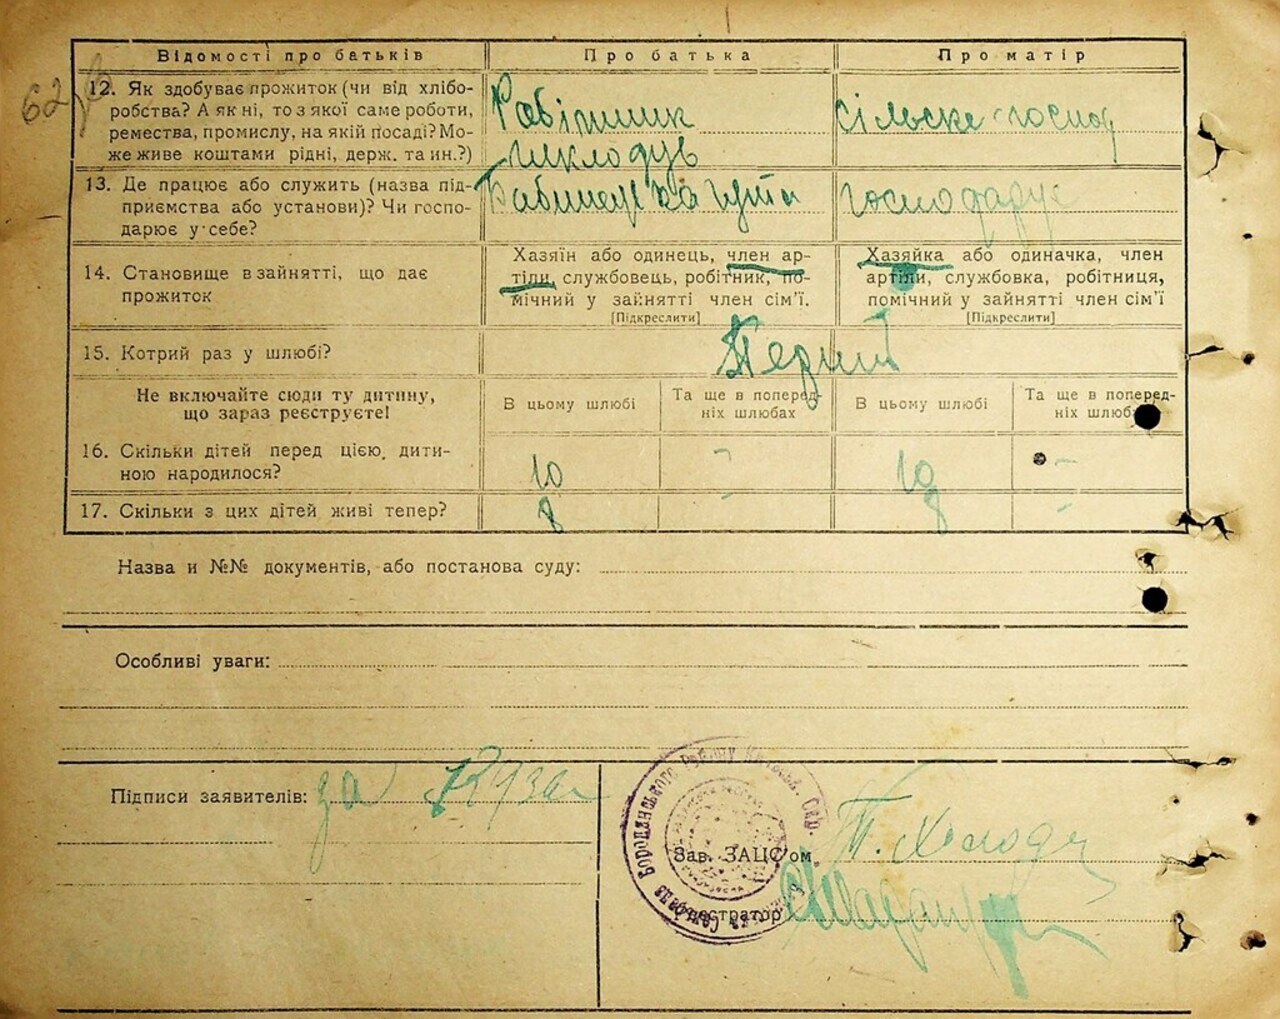 Відомості про батьків
Про батька
Про матір
62
12. Як здобуває прожиток (чи від хлібо-
робства? А як ні, то з якої саме роботи,
ремества, промислу, на якій посаді? Мо-
же живе коштами рідні, держ. та ин.?)
Робітник
склодув
сільське господ
13. Де працює або служить (назва під-
приємства або установи)? Чи госпо-
дарює у себе?
Бабинецька гута
господарує
14. Становище в зайнятті, що дає
прожиток
Хазяїн або одинець, член ар-
тіли, службовець, робітник, по-
мічний у зайнятті член сім'ї.
[Підкреслити]
Хазяйка або одиначка, член
артіли, службовка, робітниця,
помічний у зайнятті член сім'ї
[Підкреслити]
15. Котрий раз у шлюбі?
Не включайте сюди ту дитину,
що зараз реєструєте!
В цьому шлюбі
Та ще в поперед-
ніх шлюбах
В цьому шлюбі
Та ще в поперед-
ніх шлюбах
16. Скільки дітей перед цією дити-
ною народилося?
10
-
10
-
17. Скільки з цих дітей живі тепер?
8
-
8
-
Назва и №№ документів, або постанова суду:
Особливі уваги:
Підписи заявителів: за
Бородянського Району Київськ.
Зав. ЗАЦС'ом
Т. Холод